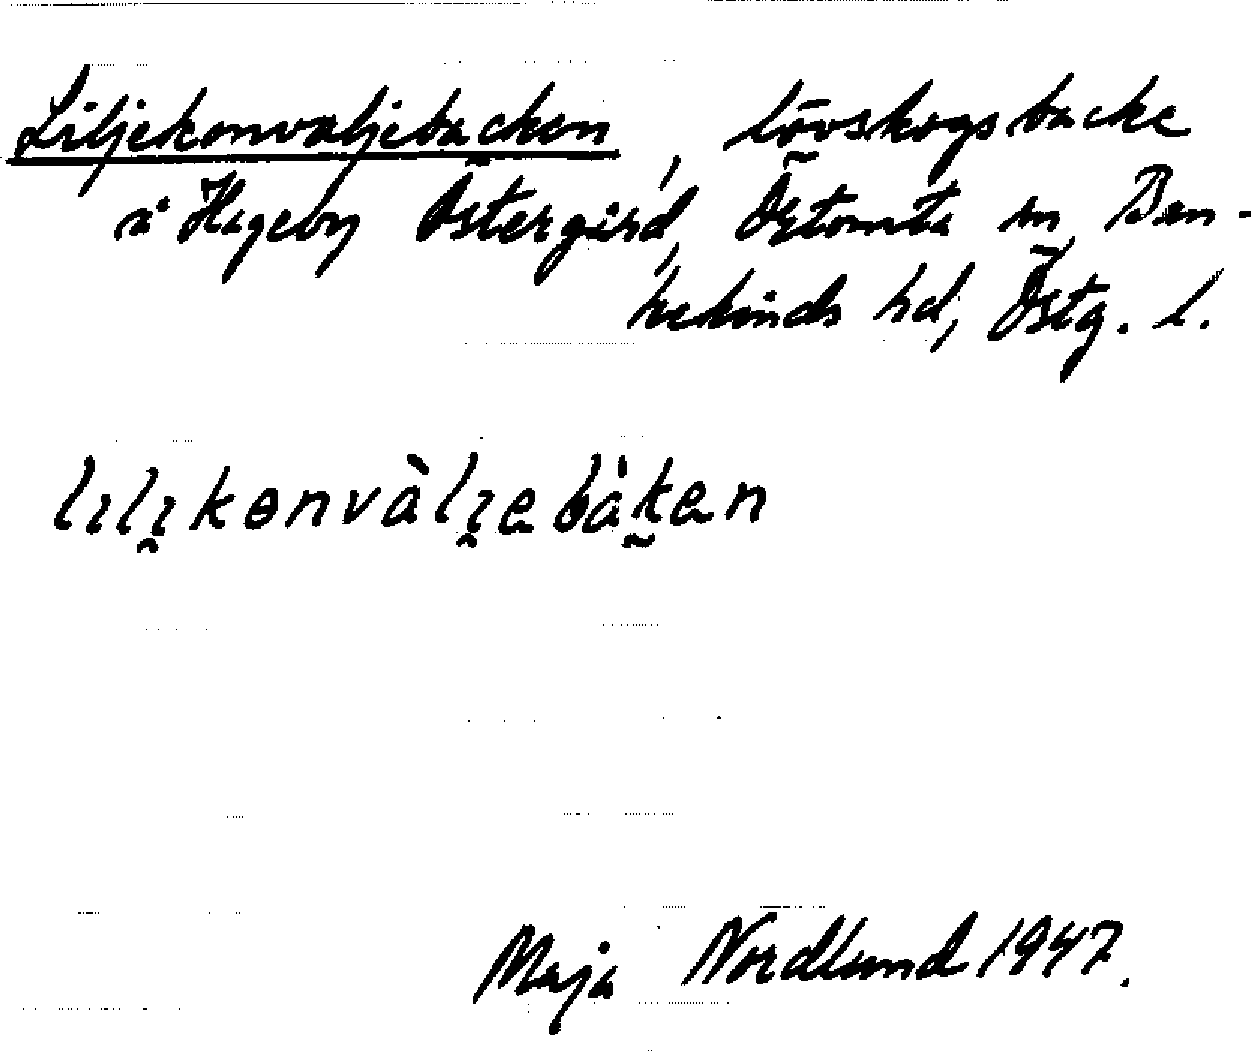 Liljekonvaljebacken, lövskogsbacke
å Hageby Östergård, Östomta sn, Ban-
kekinds hd, Östg. l.
lılı̯kɵnvàlı̯ebàk̯en
Maja Nordlund 1947.